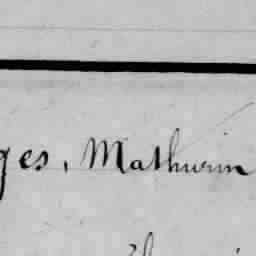 ges, Mathurin